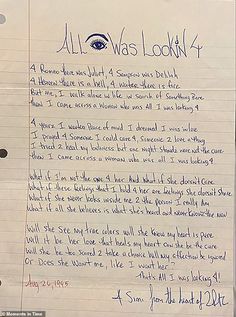 ALL WAS LOOKIN 4
4 Romeo there was Juliet, 4 Sampson was Delilah
4 Heaven there is a hell, 4 water there is fire
But me, I walk alone in search of Something Rare
then I came across a woman who was All I was looking 4
4 years I wanted Peace of mind I dreamed I was in love
I prayed 4 Someone I could care 4, Someone 2 love
I tried 2 heal my but one night stands were not the cure
then I came across a woman who was all I was looking 4
What if I'm not the one 4 her And what if She doesn't Care
What if these feelings that I hold 4 her are feelings she doesn't Share
What if She never looks inside me 2 the person I really Am
What if all she believes is what she's heard and never Knows the man
Will She See my true colors will She know my heart is pure
Will it be her love that heals my heart can she be the cure
Will She be too Scared 2 take a chance will my affection be ignored
Or Does She Want me, like I want her
That's All I was looking 4!
Aug 26, 1995
from the heart of 2PAC
© Moments in Time